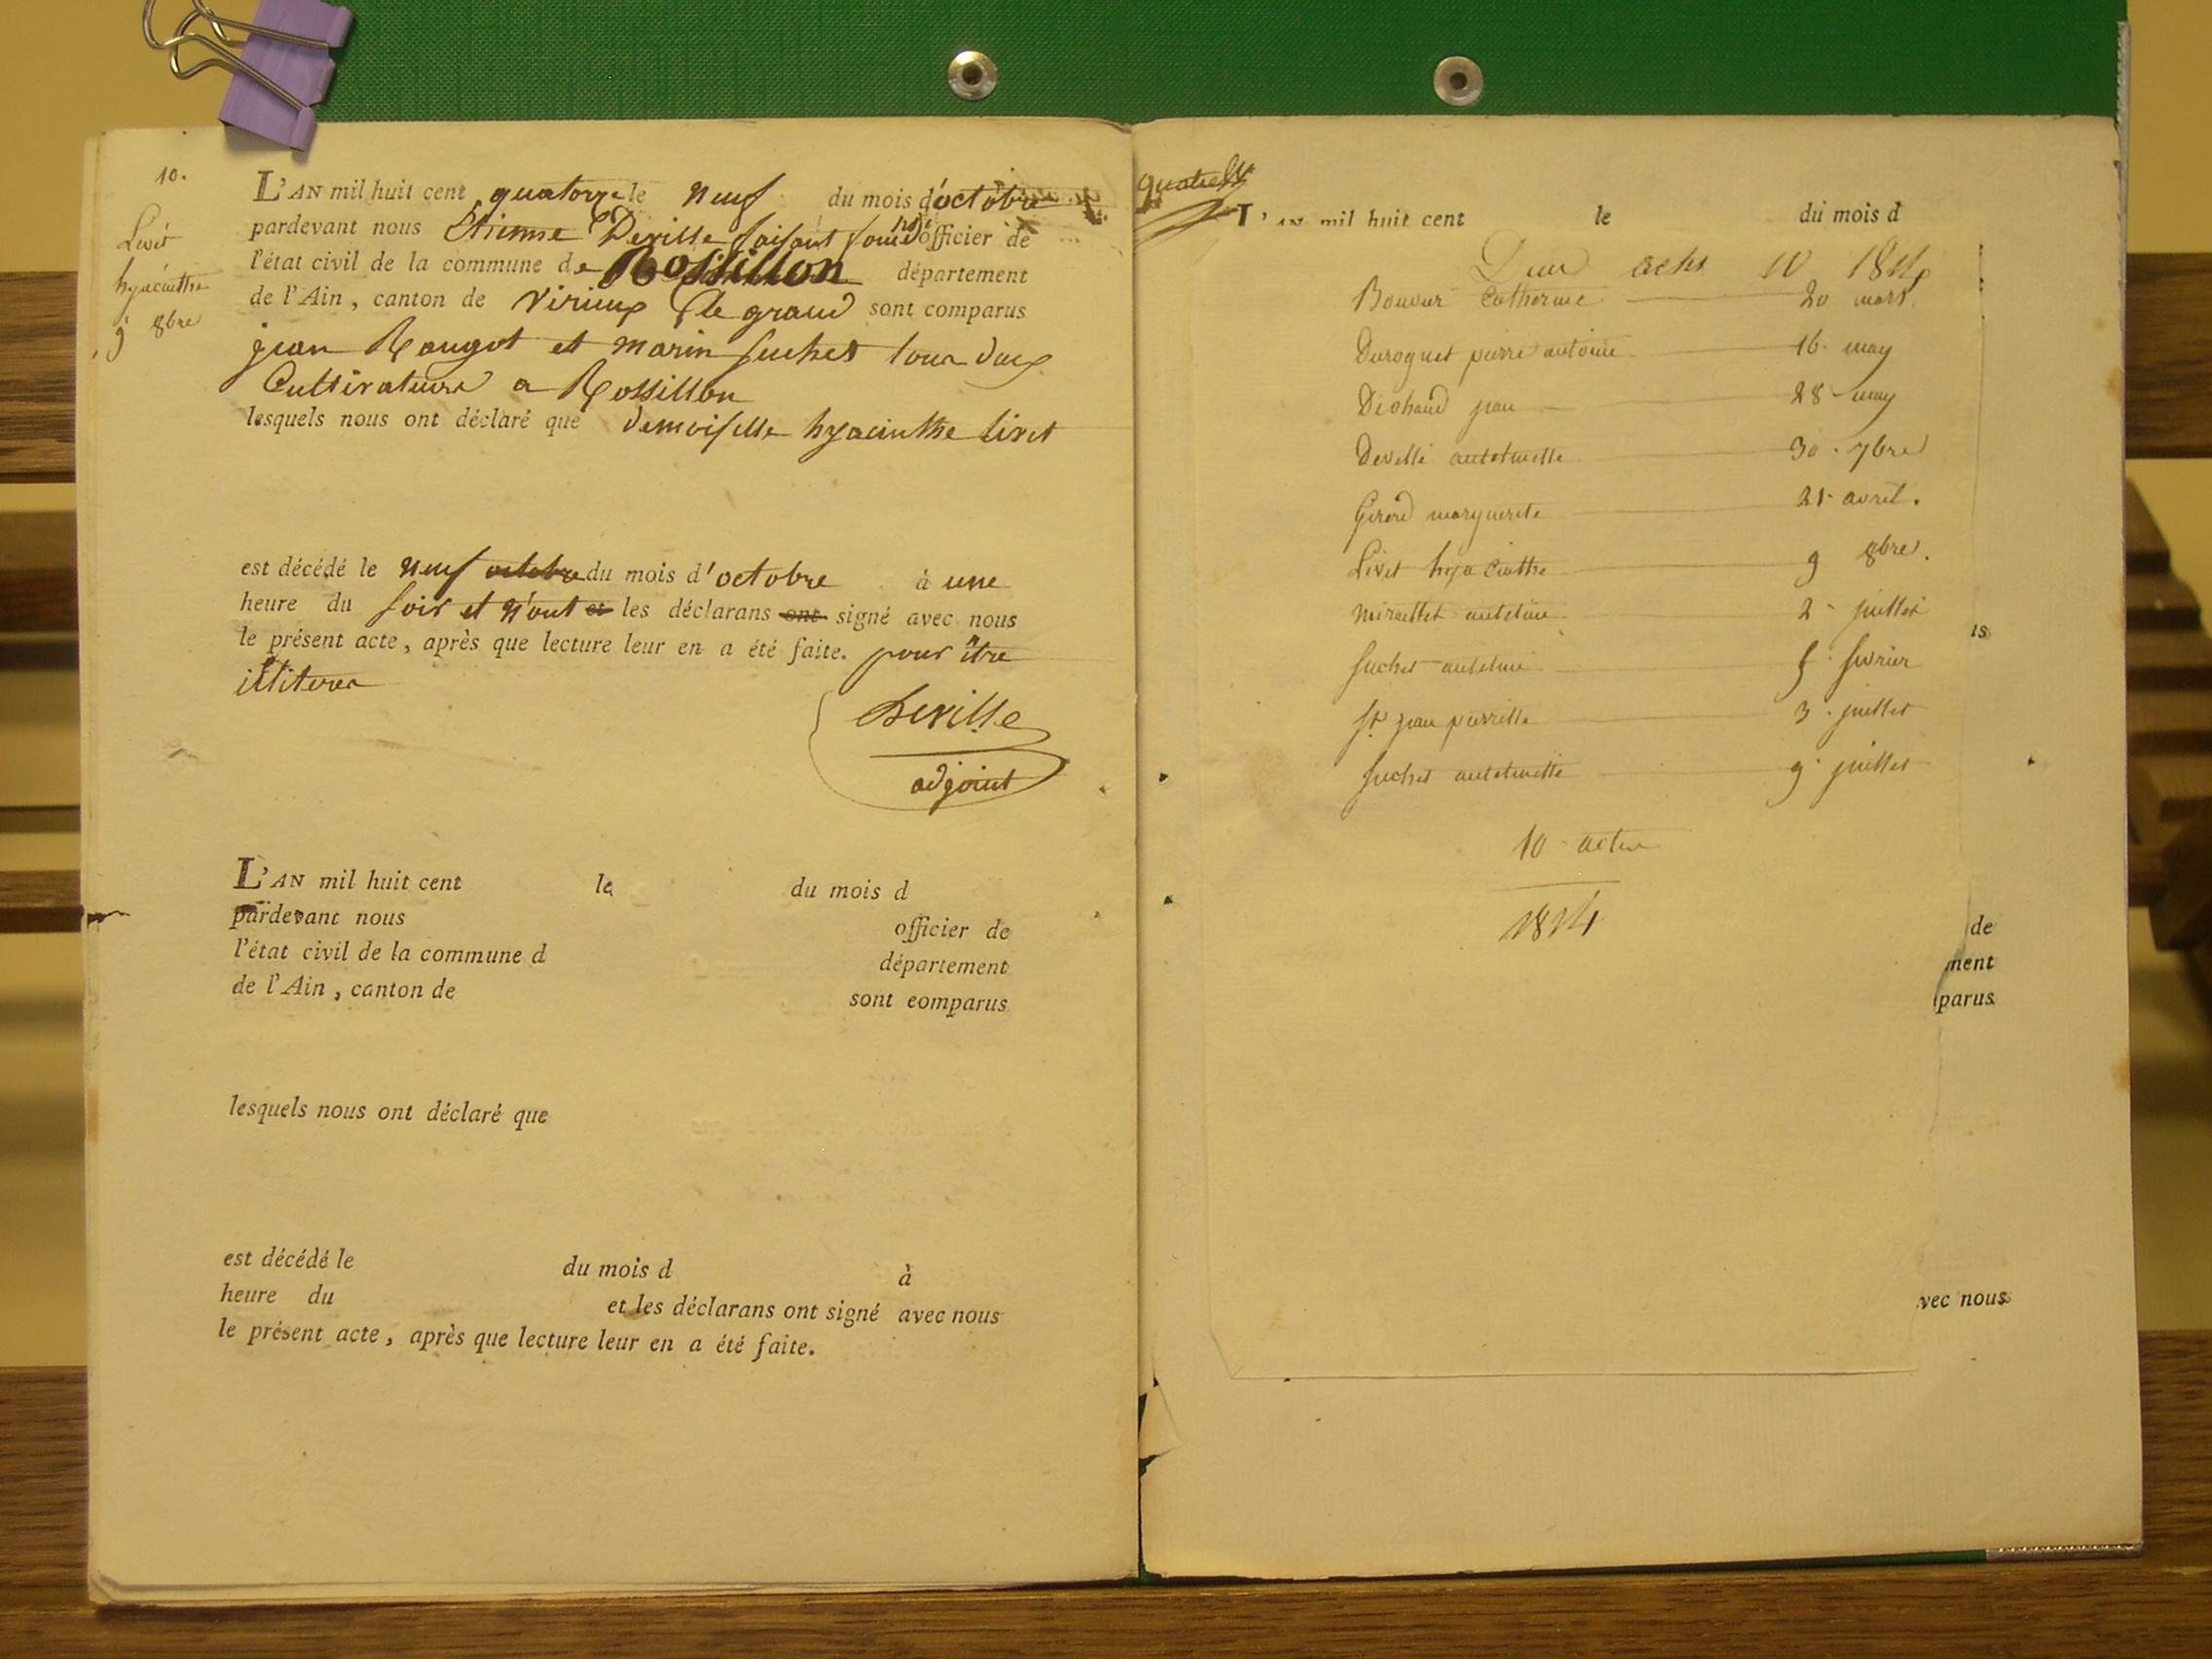 10.
Livet
hyacinthe
9 8bre
L'AN mil huit cent quatorze le neuf du mois d'octobre
pardevant nous Etienne Deville faisant officier de
l'état civil de la commune de Rossillon département
de l'Ain, canton de Virieux le grand sont comparus
jean Rougot et marin suchet tous deux
Cultivateurs a Rossillon
lesquels nous ont déclaré que demoiselle hyacinthe livet
est décédé le neuf octobre du mois d'octobre à une
heure du soir et n'ont et les déclarans ont signé avec nous
le présent acte, après que lecture leur en a été faite. pour être
illiteres
Deville
adjoint
L'AN mil huit cent le du mois d
pardevant nous officier de
l'état civil de la commune d département
de l'Ain, canton de sont eomparus
lesquels nous ont déclaré que
est décédé le du mois d à
heure du et les déclarans ont signé avec nous
le présent acte, après que lecture leur en a été faite.
L'AN mil huit cent le du mois d
actes 10 1814
Bouvier Catherine 20 mars.
Duroquet pierre antoine 16 may
Dichaud jean 28 may
Deville antoinette 30 7bre
Girard marguerite 21 avril.
Livet hyacinthe 9 8bre.
miraillet antoine 2 juillet
suchet antoine 5 fevrier
St jean pierrette 3 juillet
suchet antoinette 9 juillet
10 actes
1814
is
de
ment
parus
vec nous